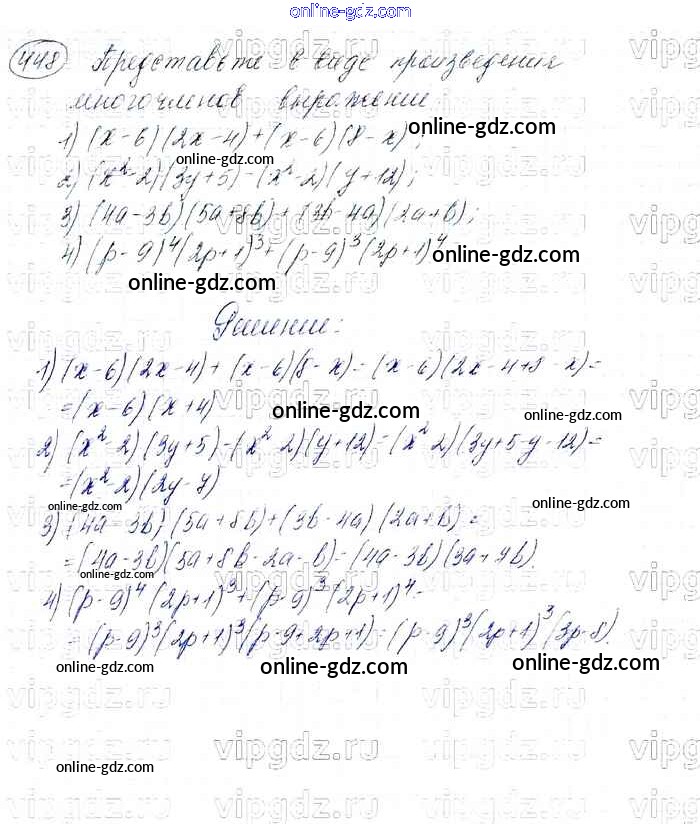 online-gdz.com
448 Представьте в виде произведения
многочленов выражение
1) (x-6)(2x-4)+(x-6)(8-x);
online-gdz.com
online-gdz.com
2) (x²-2)(3y+5)-(x²-2)(y+12);
3) (4a-3b)(5a+8b)+(3b-4a)(2a+b);
4) (p-9)⁴(2p+1)³+(p-9)³(2p+1)⁴
online-gdz.com
online-gdz.com
Решение:
1) (x-6)(2x-4)+(x-6)(8-x)=(x-6)(2x-4+8-x)=
=(x-6)(x+4)
online-gdz.com
online-gdz.com
2) (x²-2)(3y+5)-(x²-2)(y+12)=(x²-2)(3y+5-y-12)=
=(x²-2)(2y-7)
online-gdz.com
online-gdz.com
3) (4a-3b)(5a+8b)+(3b-4a)(2a+b)=
=(4a-3b)(5a+8b-2a-b)=(4a-3b)(3a+7b).
online-gdz.com
4) (p-9)⁴(2p+1)³+(p-9)³(2p+1)⁴=
=(p-9)³(2p+1)³(p-9+2p+1)=(p-9)³(2p+1)³(3p-8).
online-gdz.com
online-gdz.com
online-gdz.com
vipgdz.ru
online-gdz.com